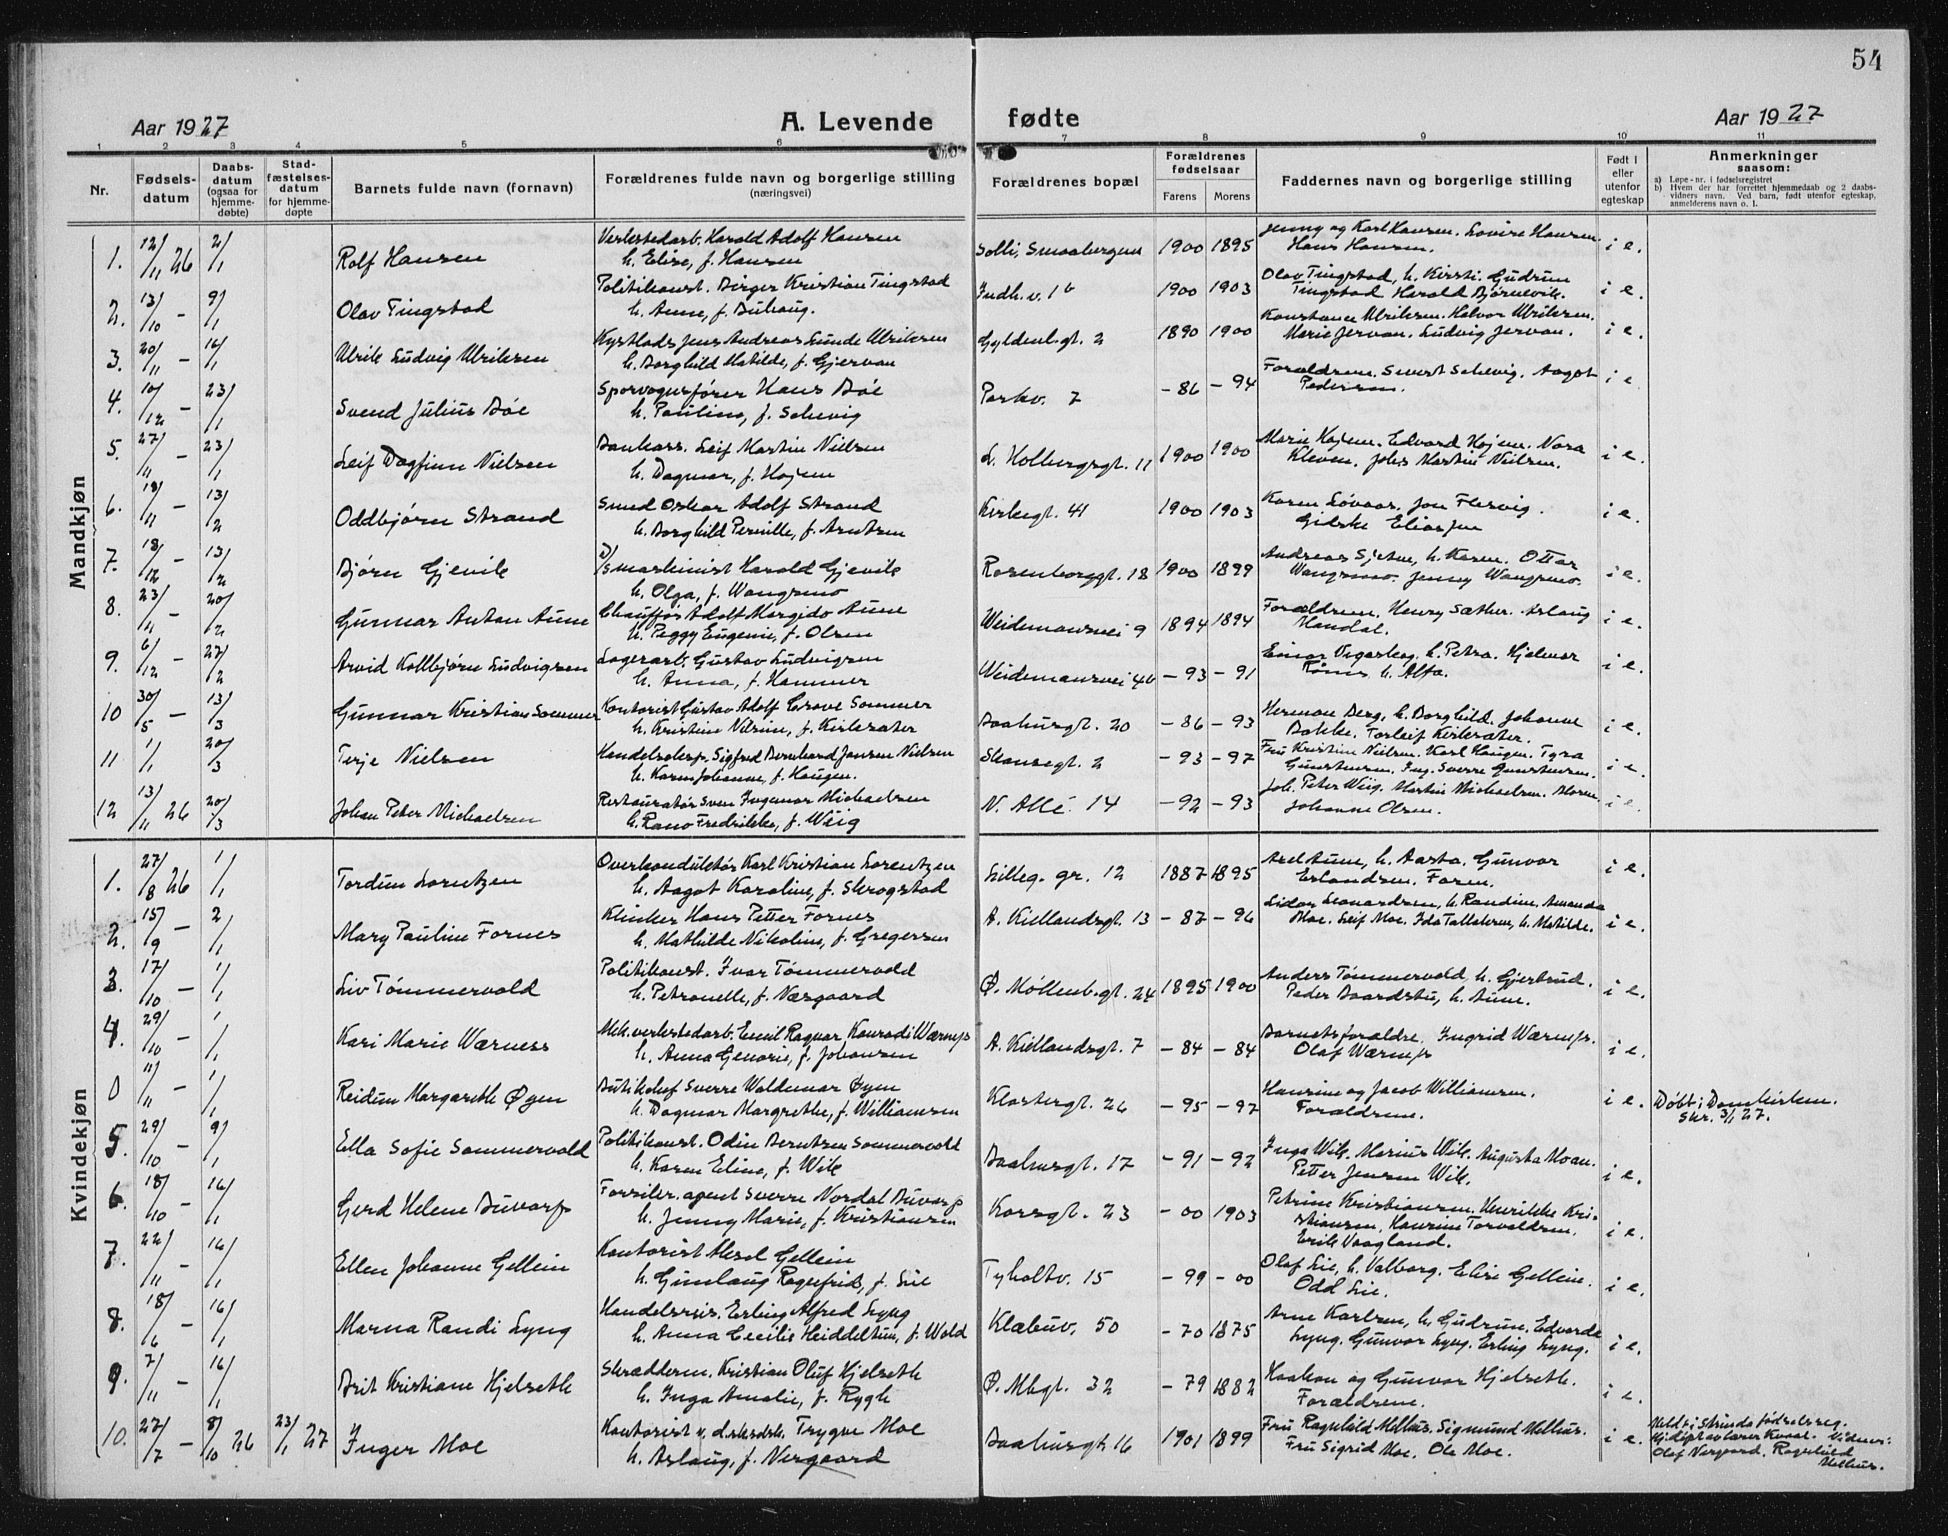 54
Aar 1927 A. Levende fødte Aar 1927
1 2 3 4 5 6 7 8 9 10 11
Nr. Fødsels-datum Daabs-datum (ogsaa for hjemme-døbte) Stad-fæstelses-datum for hjemme-døpte Barnets fulde navn (fornavn) Forældrenes fulde navn og borgerlige stilling (næringsvei) Forældrenes bopæl Forældrenes fødselsaar Farens Morens Faddernes navn og borgerlige stilling Født i eller utenfor egteskap Anmerkninger saasom:
a) Løpe-nr. i fødselsregistret
b) Hvem der har forrettet hjemmedaab og 2 daabs-vidners navn. Ved barn, født utenfor egteskap, anmelderens navn o. l.
Mandkjøn
1. 12/11 26 2/1 Rolf Hansen Verkstedarb. Harald Adolf Hansen Solli, Smaabergene 1900 1895 Jenny og Karl Hansen. Lovise Hansen. i e.
h. Elise, f. Hansen Hans Hansen.
2. 13/10 – 9/1 Olav Tingstad Politikonst. Birger Kristian Tingstad Indh. v. 1b 1900 1903 Olav Tingstad, h. Kirsti. Gudrun i e.
h. Anne, f. Buhaug. Tingstad Harald Bjørnevik.
3. 20/11 – 16/1 Ulrik Ludvig Ulriksen Jens Andreas Lunde Ulriksen Gyldenl.gt. 2 1890 1900 Konstance Ulriksen. Halvor Ulriksen. i e.
h. Borghild Matilde, f. Gjervan Marie Jervan. Ludvig Jervan.
4. 10/12 – 23/1 Svend Julius Bøe Sporvognsfører Hans Bøe Parkv. 7 – 86 – 94 Forældrene. Sivert Schevig. Aagot i e.
h. Pauline, f. Schevig Pedersen.
5. 27/11 – 23/1 Leif Dagfinn Nielsen Bankass. Leif Martin Nielsen L. Holbergsgt. 11 1900 1900 Marie Højem. Edvard Højem. Nora i e.
h. Dagmar, f. Højem Kleven. Johs Martin Nielsen.
6. 18/11 – 13/2 Oddbjørn Strand Smed Oskar Adolf Strand Kirkegt. 41 1900 1903 Karen Løvaas. Jon Flersvig. i e.
h. Borghild Pernille, f. Arntzen Gidske Eliassen
7. 18/12 – 13/2 Bjørn Gjevik D/S maskinist Harald Gjevik Rosenborggt. 18 1900 1899 Andreas h. Karen. Ottar i e.
h. Olga, f. Wangsmo Wangsmo. Jenny Wangsmo.
8. 23/11 – 20/2 Gunnar Anton Aune Chauffør Adolf Margido Aune Weidemannsvei 9 1894 1894 Forældrene. Henry Sæther. Aslaug i e.
h. Peggy Eugenie, f. Olsen Handal.
9. 6/12 – 27/2 Arvid Kolbjørn Ludvigsen Lagerarb. Gustav Ludvigsen Weidemannsvei 4b – 93 – 91 Einar h. Petra. Hjelmar i e.
h. Anna, f. Hammer h. Alfa.
10 30/5 – 13/3 Gunnar Kristian Sommer Kontorist Gustav Adolf Grove Sommer Baahusgt. 20 – 86 – 93 Herman Berg, h. Borghild. Johanne i e.
h. Kristine Nilsine, f. Kirksæter Bakke. Torleif Kirksæter.
11 1/1 20/3 Terje Nielsen Handelsbesp. Sigfred Bernhard Jensen Nielsen Skansegt. 2 – 93 – 97 Fru Kristine Nielsen. Karl Haugen. Tyra i e.
h. Karen Johanne, f. Haugen. Gunstensen. Ing. Sverre Gunstensen.
12 13/11 26 20/3 Johan Peter Michaelsen Restauratør Sven Ingemar Michaelsen N. Allé 14 – 92 – 93 Joh. Peter Wiig. Martin Michaelsen. i e.
h. Fredrikke, f. Wiig Johanne Olsen.
Kvindekjøn
1. 27/8 26 1/1 Tordun Lorentzen Overkonduktør Karl Kristian Lorentzen Lilleg. gr. 12 1887 1895 Axel Aune, h. Aasta. Gunvor i e.
h. Aagot Karoline, f. Skrogstad Erlandsen. Faren.
2. 15/9 – 2/1 Mary Pauline Fornes Klinker Hans Petter Fornes A. Kiellandsgt. 13 – 87 – 96 Leonardsen, h. Randine. Amanda i e.
h. Mathilde Nikoline, f. Gregersen Moe. Leif Moe. Ida h. Matilde.
3. 17/10 – 1/1 Liv Tømmervold Politikonst. Ivar Tømmervold Ø. Møllenb.gt. 24 1895 1900 Anders Tømmervold, h. Gjertrud. i e.
h. Petronelle, f. Næsgaard Peder Baardstu, h. Anne.
4. 29/10 – 1/1 Kari Marie Wærness Mek.verkstedarb. Emil Ragnar Konradi Wærness A. Kiellandsgt. 7 – 84 – 84 Barnets forældre. Ingrid Wærness. i e.
h. Anna Genorie, f. Johansen Olaf Wærness
0 11/11 – 1/1 Reidun Margarethe Øyen Butikchef Sverre Waldemar Øyen Klostergt. 26 – 95 – 97 Hansine og Jacob Williamsen. i e. Døbt i Domkirken.
h. Dagmar Margrethe, f. Williamsen Forældrene. Skr. 3/1 27.
5. 29/10 – 9/1 Ella Sofie Sommervold Politikonst. Odin Berntzen Sommervold Baahusgt. 17 – 91 – 92 Inga Wik. Marius Wik. Augusta Moan. i e.
h. Karen Eline, f. Wik Petter Jensen Wik.
6. 18/10 – 16/1 Gerd Helene Buvarp agent Sverre Nordal Buvarp Korsgt. 23 – 00 1903 Petrine Kristiansen. Henrikke Kri- i e.
h. Jenny Marie, f. Kristiansen stiansen, Hansine Torvaldsen.
Erik Vaagland.
7. 22/11 – 16/1 Ellen Johanne Gellein Kontorist Aksel Gellein Tyholtv. 15 – 99 – 00 Olaf Lie, h. Valborg. Elise Gellein. i e.
h. Gunlaug Ragnfrid, f. Lie Odd Lie.
8. 18/6 – 16/1 Marna Randi Lyng Handelsreis. Erling Alfred Lyng Klæbuv. 50 – 70 1875 Arne Karlsen, h. Gudrun. Edvarda i e.
h. Anna Cecilie Heiddeltun, f. Wold Lyng. Gunvor Lyng. Erling Lyng.
9. 7/11 – 16/1 Brit Kristiane Hjelseth Skrædderm. Kristian Oluf Hjelseth Ø. Mbgt. 32 – 79 1882 Haakon og Gunvor Hjelseth. i e.
h. Inga Amalie, f. Rygh Forældrene.
10. 27/7 – 8/10 26 23/1 27 Inger Moe Kontorist v. d. elektrk. Trygve Moe Baahusgt. 16 1901 1899 Fru Ragnhild Melhus. Sigmund Melhus. i e. Meldt i Strinda fødselsreg.
h. Aslaug, f. Nergaard Fru Sigrid Moe. Ole Moe. Hj.døpt av lærer Kvaal. Vidner:
Olaf Nergaard. Ragnhild
Melhus.